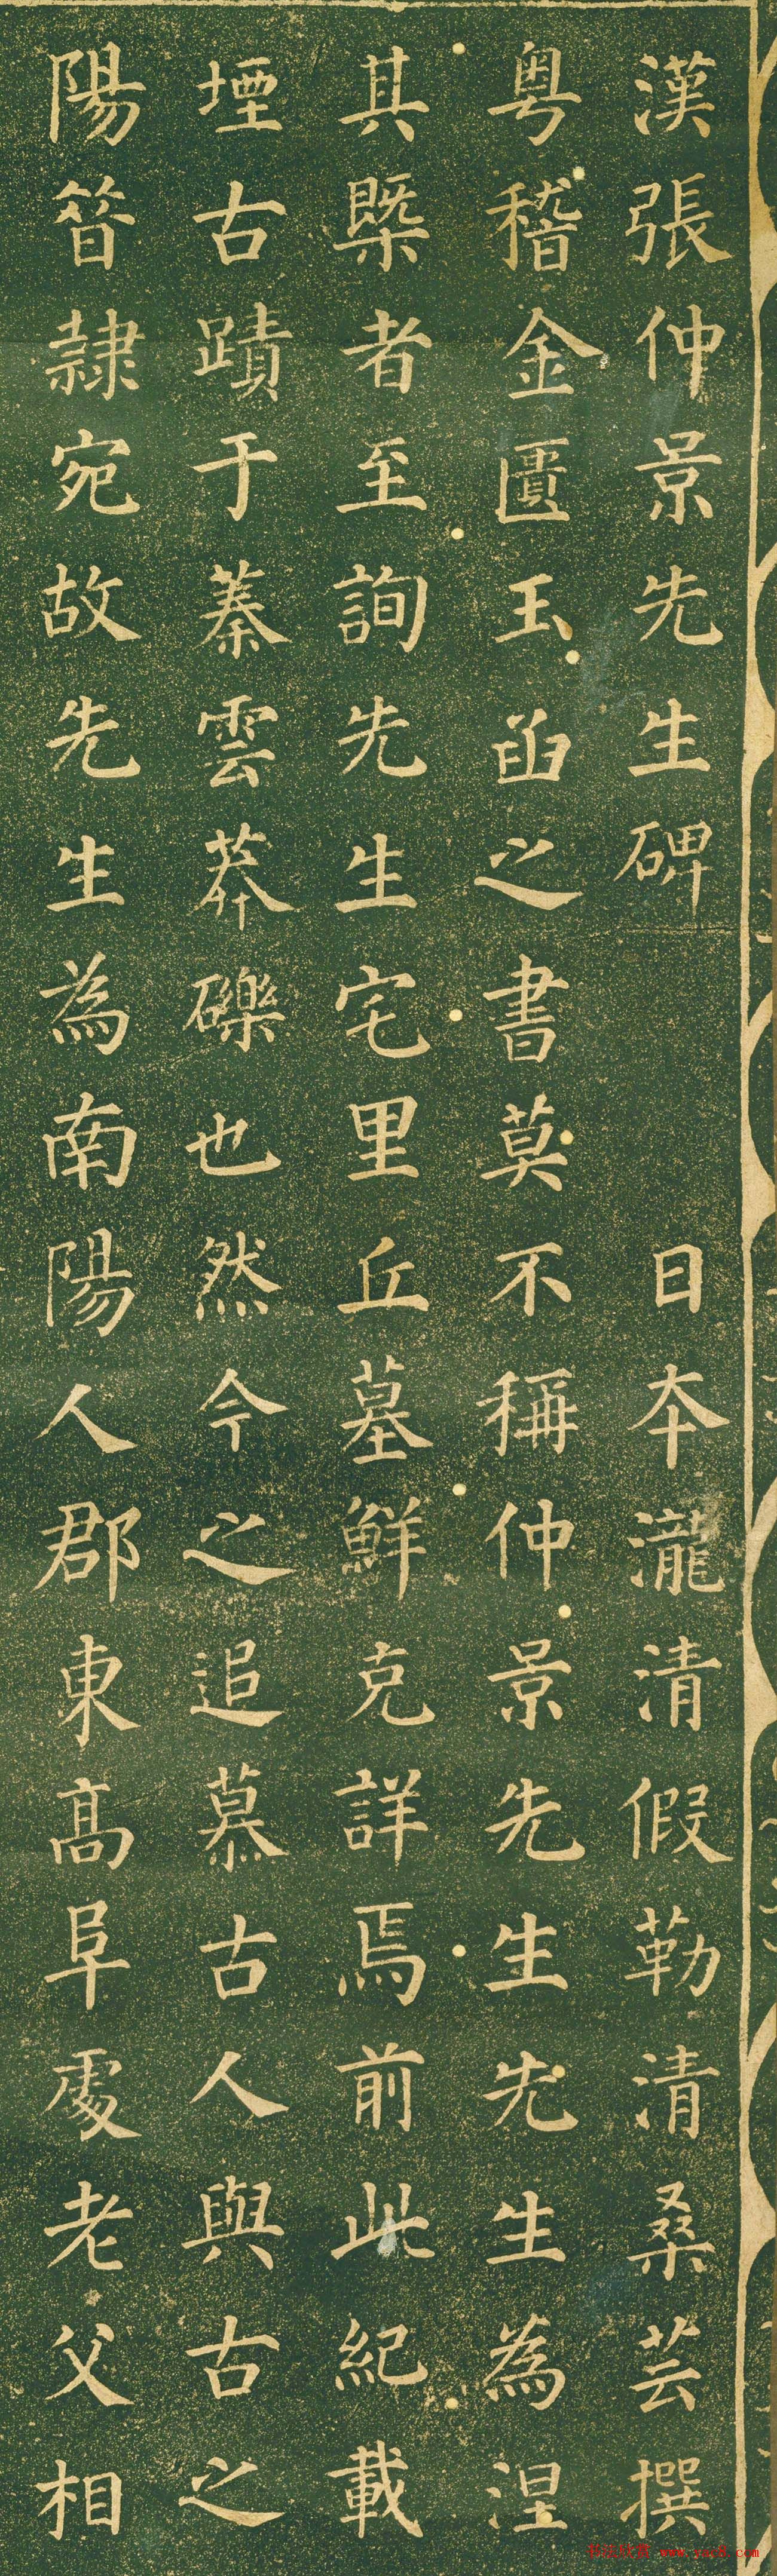 漢張仲景先生碑 日本瀧清假勒清桑芸撰
粤稽金匱玉函之書莫不稱仲景先生先生為涅
其槩者至詢先生宅里丘墓鮮克詳焉前此紀載
堙古蹟于蓁雲莽礫也然今之追慕古人與古之
陽昔隷宛故先生為南陽人郡東高阜處老父相
书法欣赏 www.yac8.com